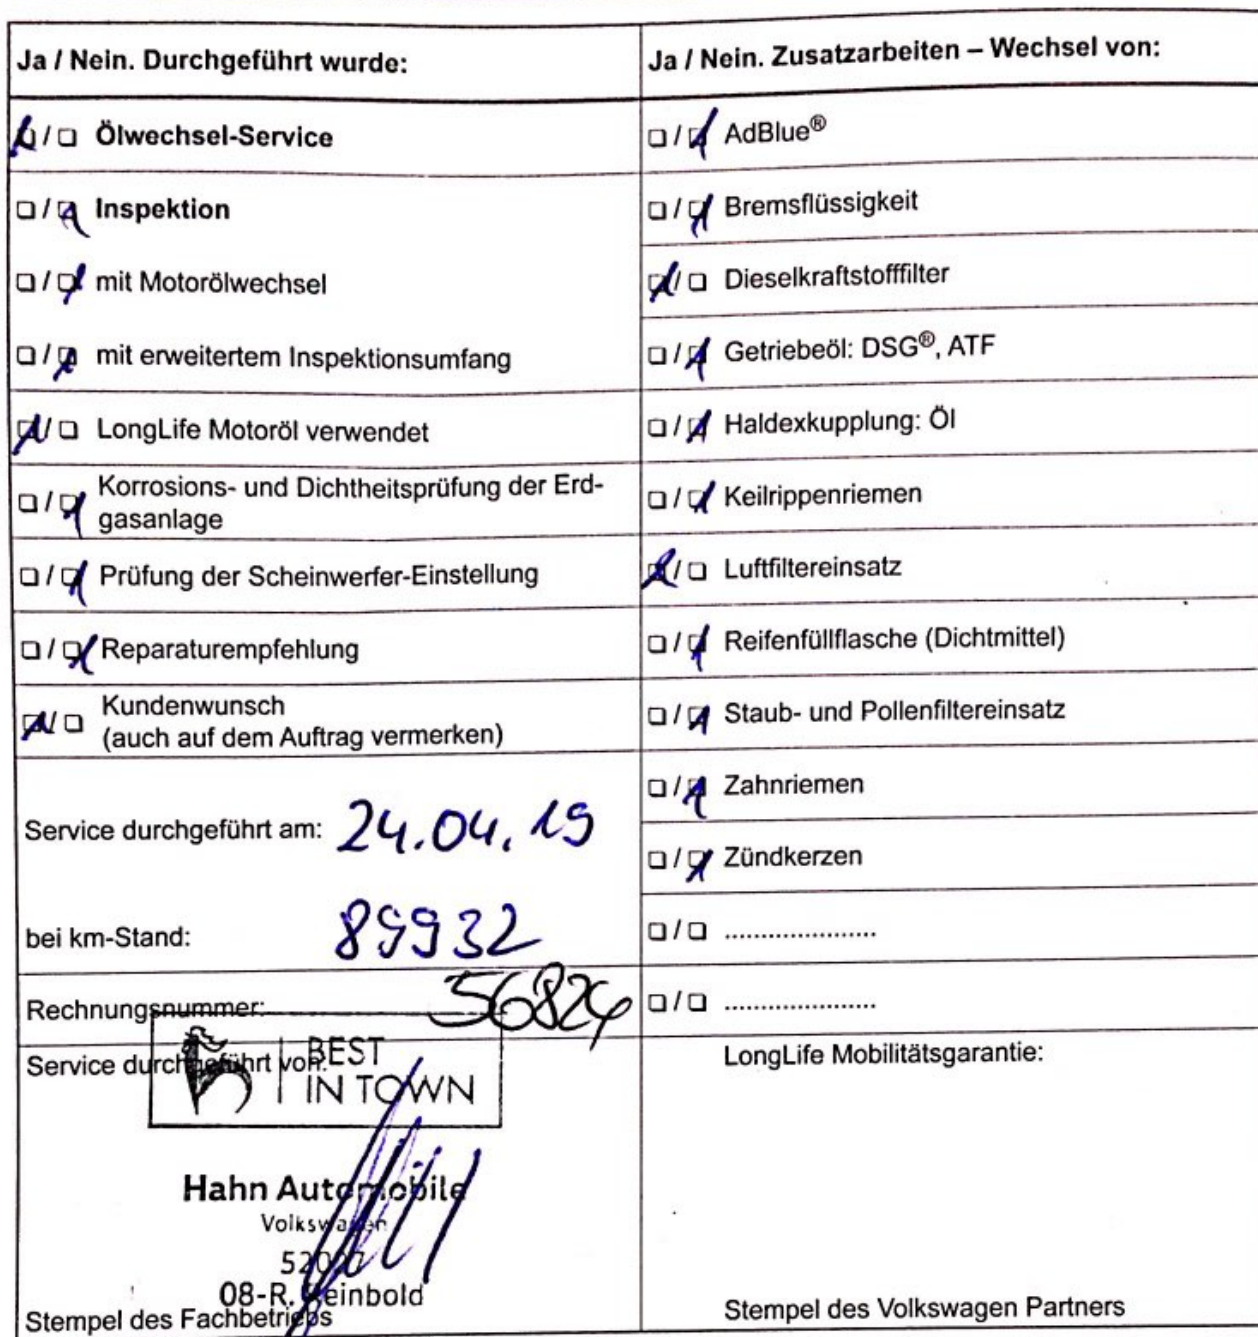 Ja / Nein. Durchgeführt wurde:
☒ / ☐ Ölwechsel-Service
☐ / ☒ Inspektion
☐ / ☒ mit Motorölwechsel
☐ / ☒ mit erweitertem Inspektionsumfang
☒ / ☐ LongLife Motoröl verwendet
☐ / ☒ Korrosions- und Dichtheitsprüfung der Erd-
gasanlage
☐ / ☒ Prüfung der Scheinwerfer-Einstellung
☐ / ☒ Reparaturempfehlung
☒ / ☐ Kundenwunsch
(auch auf dem Auftrag vermerken)
Service durchgeführt am: 24.04.19
bei km-Stand: 89932
Rechnungsnummer: 56824
Service durchgeführt von:
BEST
IN TOWN
Hahn Automobile
Volkswagen
08-R. Reinbold
Stempel des Fachbetriebs
Ja / Nein. Zusatzarbeiten – Wechsel von:
☐ / ☒ AdBlue®
☐ / ☒ Bremsflüssigkeit
☒ / ☐ Dieselkraftstofffilter
☐ / ☒ Getriebeöl: DSG®, ATF
☐ / ☒ Haldexkupplung: Öl
☐ / ☒ Keilrippenriemen
☒ / ☐ Luftfiltereinsatz
☐ / ☒ Reifenfüllflasche (Dichtmittel)
☐ / ☒ Staub- und Pollenfiltereinsatz
☐ / ☒ Zahnriemen
☐ / ☒ Zündkerzen
☐ / ☐ .....................
☐ / ☐ .....................
LongLife Mobilitätsgarantie:
Stempel des Volkswagen Partners